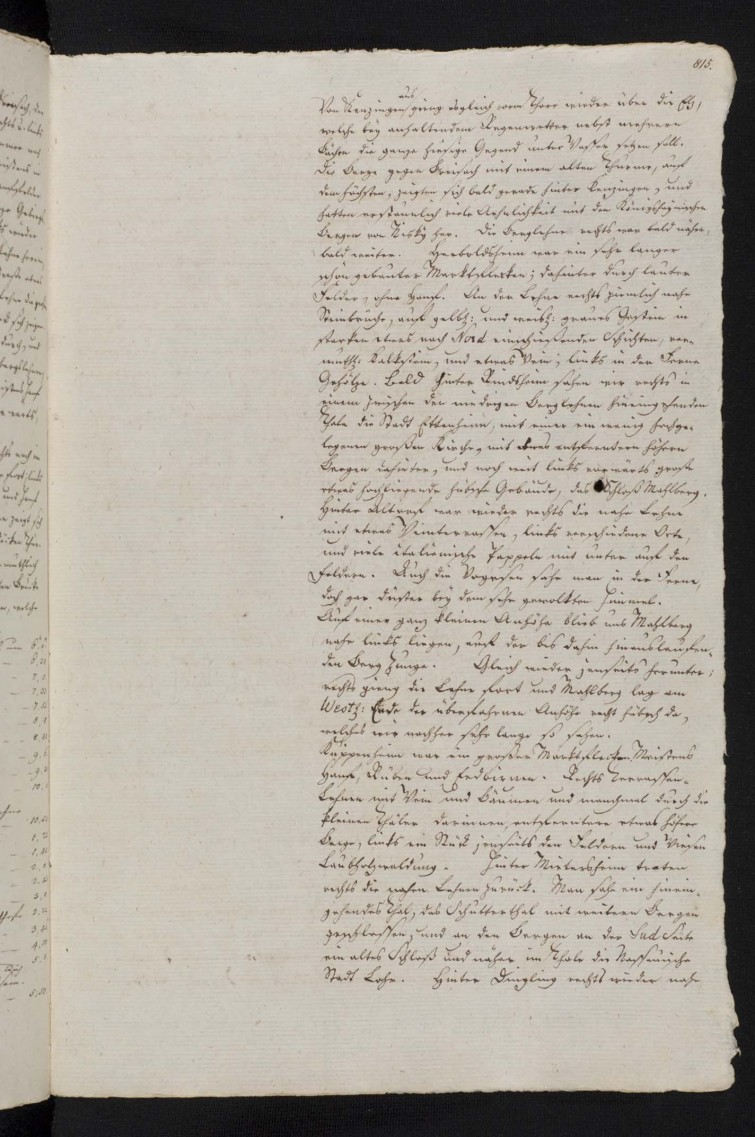 815.
aus
Von Kenzingen gieng es gleich vom Thore wieder über die Elz,
welche bey anhaltendem Regenwetter nebst mehrern
Bächen die ganze hiesige Gegend unter Wasser setzen soll.
Die Berge gegen Breisach mit einem alten Thurme, auf
dem höchsten, zeigten sich bald gerade hinter Kenzingen, und
hatten erstaunlich viele Aehnlichkeit mit den Königshaynischen
Bergen von Nisky her. Die Berglehne rechts war bald näher,
bald weiter. Herboldsheim war ein sehr langer
schön gebauter Marktflecken; dahinter durch lauter
Felder, ohne Hanf. An der Lehne rechts ziemlich nahe
Steinbrüche, auf gelbl: und weisl: graues Gestein in
starken etwas nach Nord einschießenden Schichten, ver-
muthl: Kalkstein, und etwas Wein; links in der Ferne
Gehölze. Bald hinter Ringsheim sahen wir rechts in
einem zwischen den niedrigen Berglehnen hineingehenden
Thale die Stadt Ettenheim, mit einer ein wenig hochge-
legenen großen Kirche, mit entfernten höhern
Bergen dahinter, und noch weit links vorwärts große
etwas hochliegende hübsche Gebäude, das Schloß Mahlberg.
Hinter Altorf war wieder rechts die nahe Lehne
mit etwas Weinterrassen, links verschiedene Orte,
und viele italiänische Pappeln mit unter auf den
Feldern. Auch die Vogesen sahe man in der Ferne,
doch gar düster bey dem sehr gewolkten Himmel.
Auf einer ganz kleinen Anhöhe blieb uns Mahlberg
nahe links liegen, auf der bis dahin hinauslaufen-
den Berg Zunge. Gleich wieder jenseits herunter;
rechts gieng die Lehne fort und Mahlberg lag am
Westl: Ende der überfahrnen Anhöhe recht hübsch da,
welches wir nachher sehr lange so sahen.
Kippenheim war ein großer Marktflecken. Meistens
Hanf, Rüben und Erdbirnen. Rechts Terrassen-
Lehnen mit Wein und Bäumen und manchmal durch die
kleinen Thäler darinnen, entferntere etwas höhere
Berge, links ein Stück jenseits den Feldern und Wiesen
Laubholzwaldung. Hinter Mietersheim traten
rechts die nahen Lehnen zurück. Man sahe ein hinein-
gehendes Thal, das Schutterthal mit weitern Bergen
geschlossen, und an den Bergen an der Sud Seite
ein altes Schloß und näher im Thale die Nassauische
Stadt Lahr. Hinter Dingling rechts wieder nahe